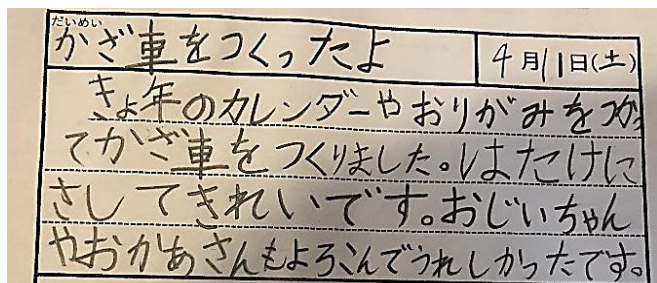 だいめい
かざ車をつくったよ
4月11日(土)
きょ年のカレンダーやおりがみをつかっ
てかざ車をつくりました。はたけに
さしてきれいです。おじいちゃん
やおかあさんもよろこんでうれしかったです。